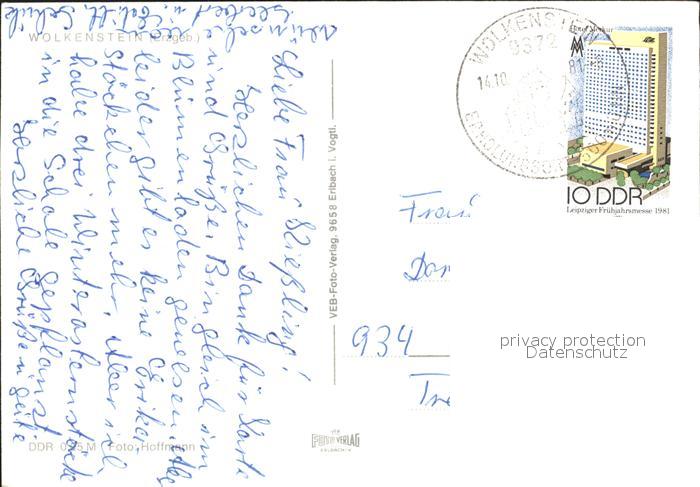 WOLKENSTEIN (Erzgeb.)
Liebe Frau Kießling!
Herzlichen Dank für Karte
und Grüße. Bin gleich im
Blumenladen gewesen. Aber
leider gibt es keine Eriken-
stöckchen mehr. Aber ich
habe drei Winterasternstöcke
in die Schale gepflanzt
Herzliche Grüße
DDR M Foto: Hoffmann
VEB-Foto-Verlag, 9658 Erlbach i. Vogtl.
VEB
FOTO VERLAG
ERLBACH
WOLKENSTEIN
9372
14.10. 81
Hotel Merkur
10 DDR
Leipziger Frühjahrsmesse 1981
Frau
934
privacy protection
Datenschutz